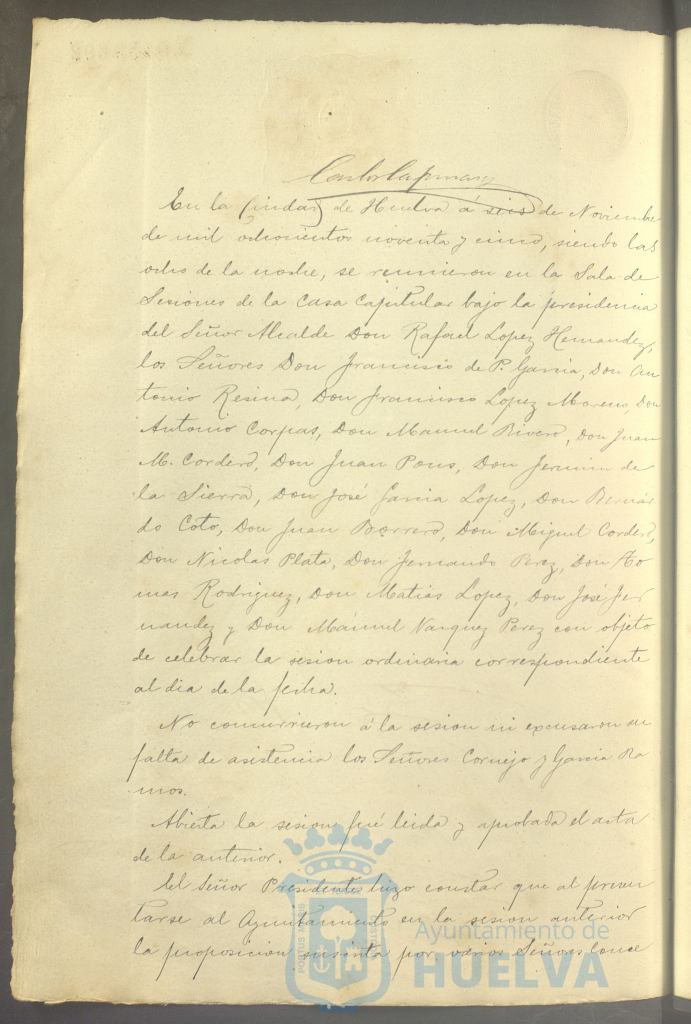 En la Ciudad de Huelva á seis de Noviembre
de mil ochocientos noventa y cinco, siendo las
ocho de la noche, se reunieron en la Sala de
Sesiones de la Casa Capitular bajo la presidencia
del Señor Alcalde Don Rafael Lopez Hernandez,
los Señores Don Francisco de P. Garcia, Don An
tonio Resina, Don Francisco Lopez Moreno, Don
Antonio Corpas, Don Manuel Rivero, Don Juan
M. Cordero, Don Juan Pons, Don Fermin de
la Sierra, Don José Garcia Lopez, Don Bernar
do Coto, Don Juan Borrero, Don Miguel Cordero,
Don Nicolas Plata, Don Fernando Perez, Don To
mas Rodriguez, Don Matias Lopez, Don José Fer
nandez y Don Manuel Vazquez Perez con objeto
de celebrar la sesion ordinaria correspondiente
al dia de la fecha.
No concurrieron á la sesion ni excusaron su
falta de asistencia los Señores Cornejo y Garcia Ra
mos.
Abierta la sesion fué leida y aprobada el acta
de la anterior.
El Señor Presidente hizo constar que al presen
tarse al Ayuntamiento en la sesion anterior
la proposicion suscrita por varios Señores Conce
Ayuntamiento de
HUELVA